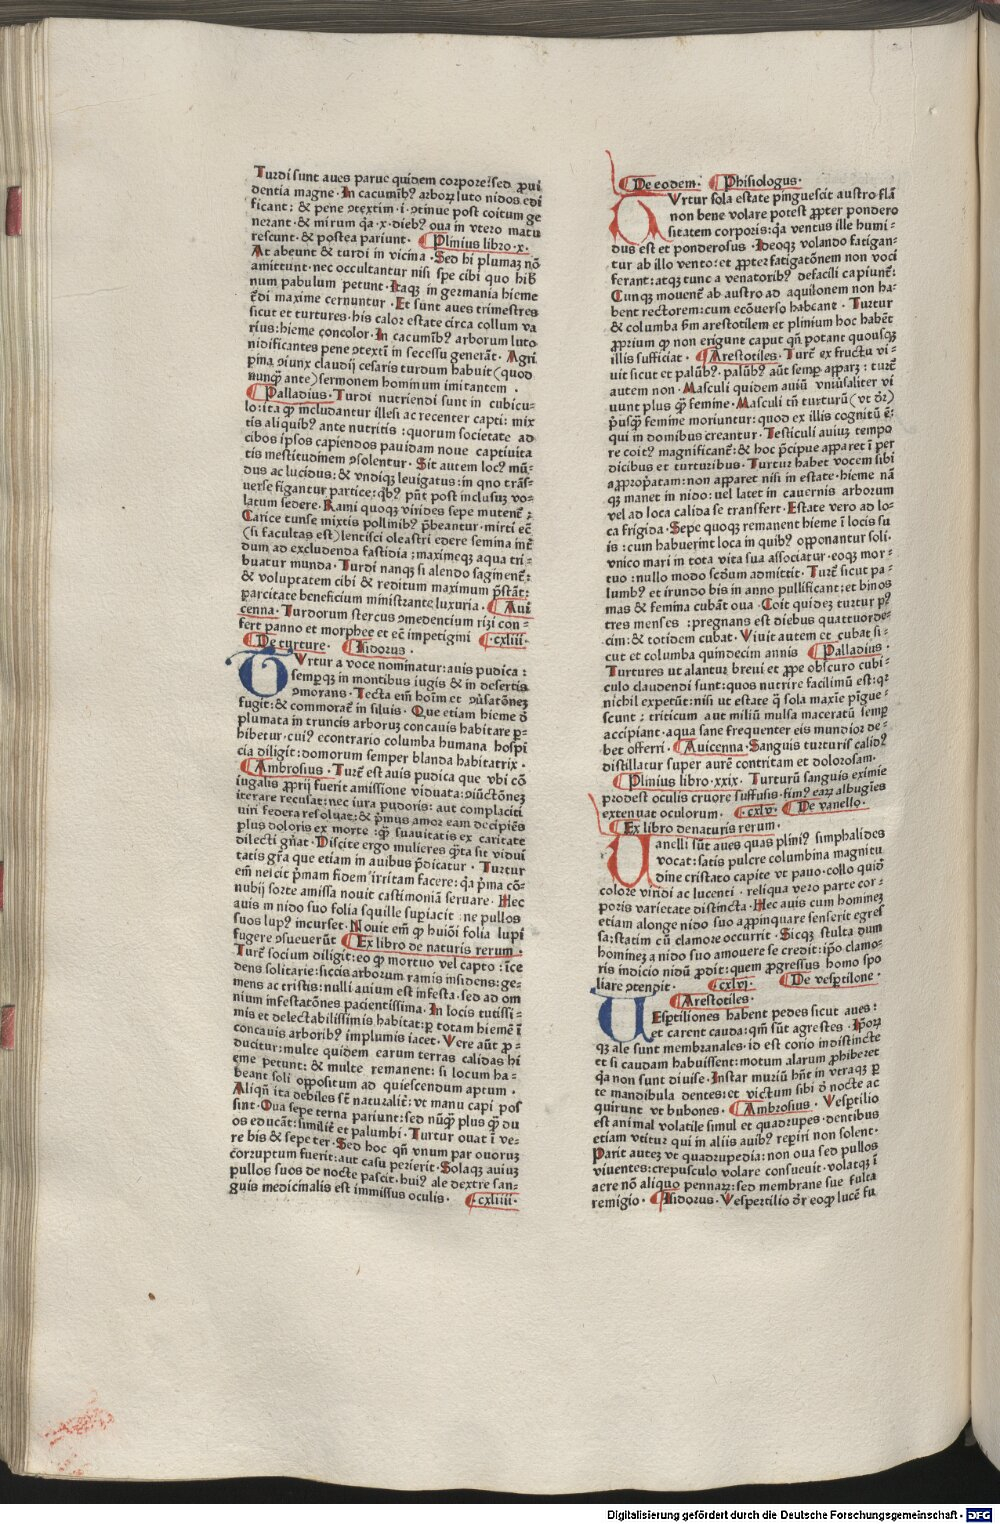 Turdi sunt aues parue quidem corpore:sed ꝓui
dentia magne· In cacumīb⁹ arboꝝ luto nidos edi
ficant: & pene ꝯtextim·i·ꝯtinue post coitum ge
nerant·& mirum q̄a·x·dieb⁹ oua in vtero matu
rescunt·& postea pariunt· Plinius libro·x·
At abeunt & turdi in vicina·Sed hi plumaꝫ nō
amittunt·nec occultantur nisi spe cibi quo hib̄
num pabulum petunt·Itaqꝫ in germania hieme
t̄di maxime cernuntur·Et sunt aues trimestres
sicut et turtures·his calor estate circa collum va
rius:hieme concolor·In cacumīb⁹ arborum luto
nidificantes pene ꝯtextī in secessu generāt· Agri
p̄ina ꝯiunx claudij cesaris turdum habuit(quod
nunqꝫ̄ ante)sermonem hominum imitantem·
Palladius·Turdi nutriendi sunt in cubicu-
lo:ita ꝙ includantur illesi ac recenter capti: mix
tis aliquib⁹ ante nutritis :quorum societate ad
cibos ipsos capiendos pauidam noue captiuita
tis mestitudinem ꝯsolentur· Sit autem loc⁹ mū-
dus ac lucidus:& vndiqꝫ leuigatus:in qno trās-
uerse figantur partice:qb⁹ pn̄t post inclusuꝫ vo-
latum sedere·Rami quoqꝫ virides sepe mutent᷑:
Carice tunse mixtis pollinib⁹ p̄beantur·mirti ec̄
(si facultas est)lentisci oleastri edere semina int᷑
dum ad excludenda fastidia;maximeqꝫ aqua tri-
buatur munda·Turdi nanqꝫ si alendo saginent᷑:
& voluptatem cibi & reditum maximum p̄stāt:
parcitate beneficium ministrante luxuria· Aui
cenna·Turdorum stercus ꝯmedentium rizi con-
fert panno et morphee et ec̄ impetigini cxliii·
De turture· Isidorus·
TVrtur a voce nominatur:auis pudica:
semperqꝫ in montibus iugis & in desertis
ꝯmorans·Tecta em̄ hoīm et ꝯuˀsatōneꝫ
fugit:& commorat᷑ in siluis·Que etiam hieme d̄
plumata in truncis arboruꝫ concauis habitare ꝑ-
hibetur·cui⁹ econtrario columba humana hospi
cia diligit:domorum semper blanda habitatrix·
Ambrosius·Turt᷑ est auis pudica que vbi cō
iugalis ꝓprij fuerit amissione viduata:ꝯiūctōneꝫ
iterare recusat:nec iura pudoris: aut complaciti
viri federa resoluat:& p̄mus amor eam decipiēs
plus doloris ex morte :ꝙ suauitatis ex caritate
dilecti gn̄at·Discite ergo mulieres q̄ta sit vidui
tatis gr̄a que etiam in auibus p̄dicatur· Turtur
em̄ nescit p̄mam fidem irritam facere: q̄a p̄ma cō-
nubij sorte amissa nouit castimoniā seruare· Hec
auis in nido suo folia squille supiacit :ne pullos
suos lup⁹ incurset·Nouit em̄ ꝙ huiōi folia lupi
fugere ꝯsueuerūt Ex libro de naturis rerum·
Turt᷑ socium diligit:eo ꝙ mortuo vel capto :īce
dens solitarie:siccis arborum ramis insidens:ge-
mens ac tristis:nulli auium est infesta·sed ad om
nium infestatōnes pacientissima·In locis tutissi-
mis et delectabilissimis habitat:ꝑ totam hiemē ī
concauis arborib⁹ implumis iacet· Vere aūt ꝓ-
ducitur:multe quidem earum terras calidas hi
eme petunt: & multe remanent: si locum ha-
beant soli oppositum ad quiescendum aptum·
Aliqn̄ ita debiles sūt naturalit᷑: vt manu capi pos
sint·Oua sepe terna pariunt:sed nūqꝫ̄ plus qꝫ̄ du
os educāt:similit᷑ et palumbi·Turtur ouat ī ve-
re bis & sepe ter·Sed hoc qn̄ vnum par ouoruꝫ
corruptum fuerit:aut casu perierit·Solaqꝫ auiuꝫ
pullos suos de nocte pascit·hui⁹ ale dextre san-
guis medicinalis est immissus oculis· cxliiii·
De eodem· Phisiologus·
TVrtur sola estate pinguescit austro flā
non bene volare potest ꝓpter pondero
sitatem corporis:q̄a ventus ille humi-
dus est et ponderosus·Ideoqꝫ volando fatigan-
tur ab illo vento:et ꝓpter fatigatōnem non voci
ferant:atqꝫ tunc a venatorib⁹ defacili capiunt᷑:
Cunqꝫ mouent᷑ ab austro ad aquilonem non ha-
bent rectorem:cum ecōuerso habeant· Turtur
& columba scd̄m arestotilem et plinium hoc habēt
ꝓprium ꝙ non erigunt caput qn̄ potant quousqꝫ
illis sufficiat· Arestotiles·Turt᷑ ex fructu vi-
uit sicut et palūb⁹·palūb⁹ aūt semꝑ apparꝫ: turt᷑
autem non·Masculi quidem auiū vniuˀsaliter vi
uunt plus qꝫ̄ femine·Masculi tn̄ turturū(vt dr̄)
p̄usqꝫ̄ femine moriuntur:quod ex illis cognitū ē:
qui in domibus creantur·Testiculi auiuꝫ tempo
re coit⁹ magnificant᷑:& hoc p̄cipue apparet ī ꝑer
dicibus et turturibus·Turtur habet vocem sibi
appropatam:non apparet nisi in estate·hieme nā
qꝫ manet in nido:uel latet in cauernis arborum
vel ad loca calida se transfert·Estate vero ad lo-
ca frigida·Sepe quoqꝫ remanent hieme ī locis su
is:cum habuerint loca in quib⁹ opponantur soli·
vnico mari in tota vita sua associatur·eoqꝫ mor-
tuo:nullo modo scd̄um admittit·Turt᷑ sicut pa-
lumb⁹ et irundo bis in anno pullificant:et binos
mas & femina cubāt oua·Coit quideꝫ turtur p⁹
tres menses :pregnans est diebus quattuorde-
cim:& totidem cubat·Viuit autem et cubat si-
cut et columba quindecim annis Palladius·
Turtures ut alantur breui et ꝓpe obscuro cubi-
culo claudendi sunt:quos nutrire facilimū est:qꝛ
nichil expetūt:nisi ut estate q̄ sola maxīe pīgue-
scunt : triticum aut miliū mulsa maceratū semꝑ
accipiant·aqua sane frequenter eis mundior de-
bet offerri· Auicenna·Sanguis turturis calid⁹
distillatur super aurē contritam et dolorosam·
Plinius libro·xxix·Turturū sanguis eximie
prodest oculis cruore suffusis·fim⁹ eaꝝ albugīes
extenuat oculorum· cxlv· De vanello·
Ex libro denaturis rerum·
Vanelli sūt aues quas plini⁹ simphalides
vocat:satis pulcre columbina magnitu
dine cristato capite vt pauo·collo quid̄
colore viridi ac lucenti·reliqua vero parte cor-
poris varietate distincta·Hec auis cum homineꝫ
etiam alonge nido suo appinquare senserit egres
sa:statim cū clamore occurrit·Sicqꝫ stulta dum
homineꝫ a nido suo amouere se credit:ip̄o clamo-
ris indicio nidū ꝓdit:quem ꝓgressus homo spo
liare ꝯtendit· cxlvi· De vesp̄tilione·
Arestotiles·
VEspertiliones habent pedes sicut aues:
et carent cauda:qm̄ sūt agrestes·Ip̄oꝝ
qꝫ ale sunt membranales·id est corio indistincte
et si caudam habuissent:motum alarum ꝓhiberet
q̄a non sunt diuise·Instar muriū hn̄t in vtraqꝫ ꝑ
te mandibula dentes:et victum sibi d̄ nocte ac
quirunt vt bubones· Ambrosius·Vesp̄tilio
est animal volatile simul et quadrupes·dentibus
etiam vtitur qui in aliis auib⁹ reꝑiri non solent·
Parit auteꝫ vt quadrupedia:non oua sed pullos
viuentes:crepusculo volare consueuit·volatqꝫ ī
aere nō aliquo pennaꝝ:sed membrane sue fulta
remigio· Isidorus·Vespertilio dr̄ eoꝙ lucē fu
Digitalisierung gefördert durch die Deutsche Forschungsgemeinschaft - DFG